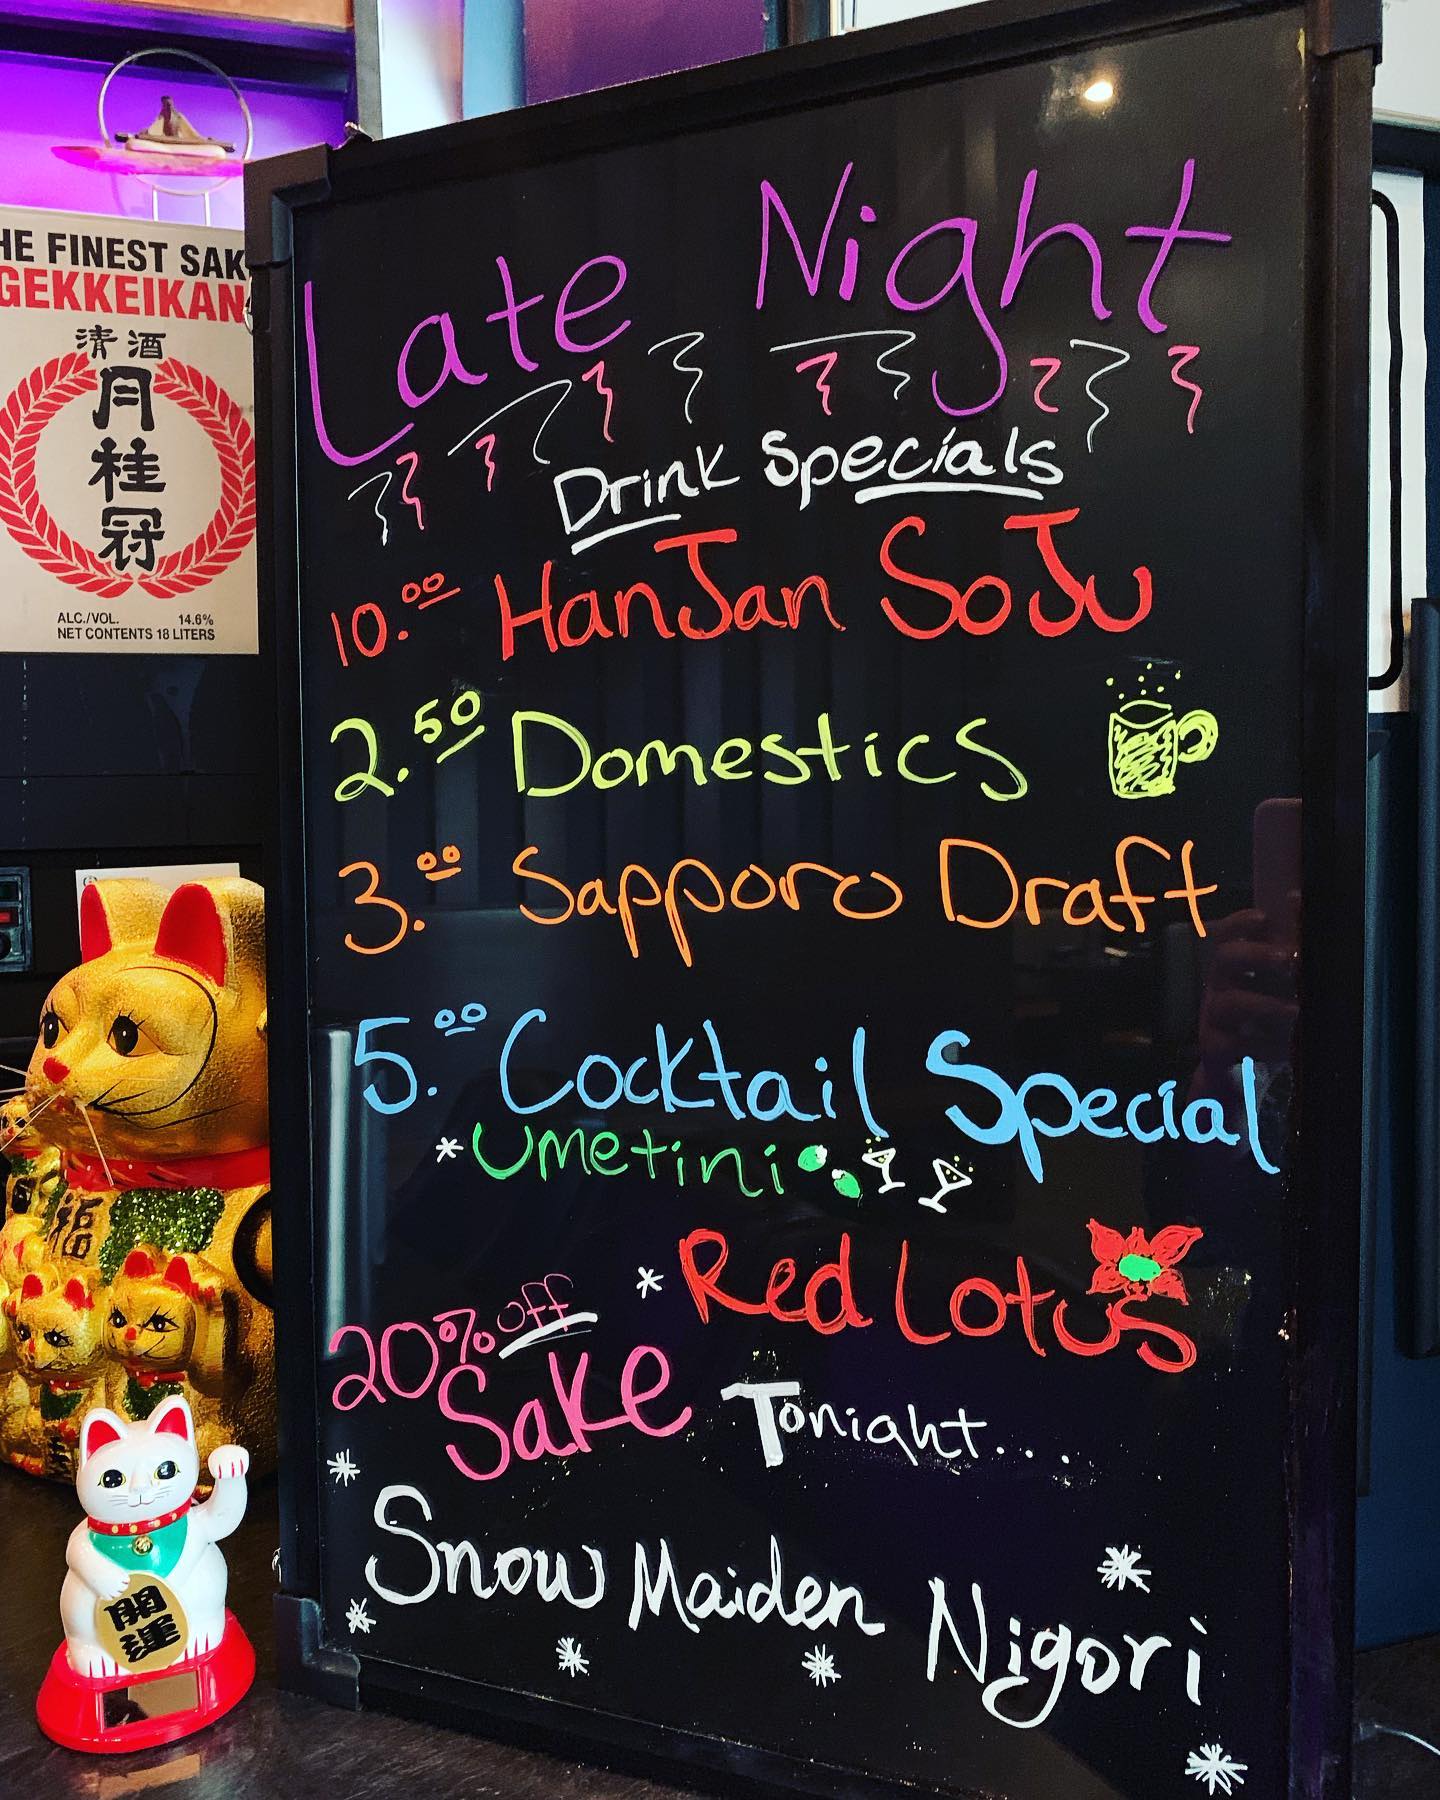 THE FINEST SAK
GEKKEIKAN
清酒
月桂冠
ALC./VOL. 14.6%
NET CONTENTS 18 LITERS
Late Night
Drink Specials
10.00 HanJan SoJu
2.50 Domestics
3.00 Sapporo Draft
5.00 Cocktail Special
*Umetini
*Red Lotus
20% off
Sake Tonight...
Snow Maiden Nigori
福
開運